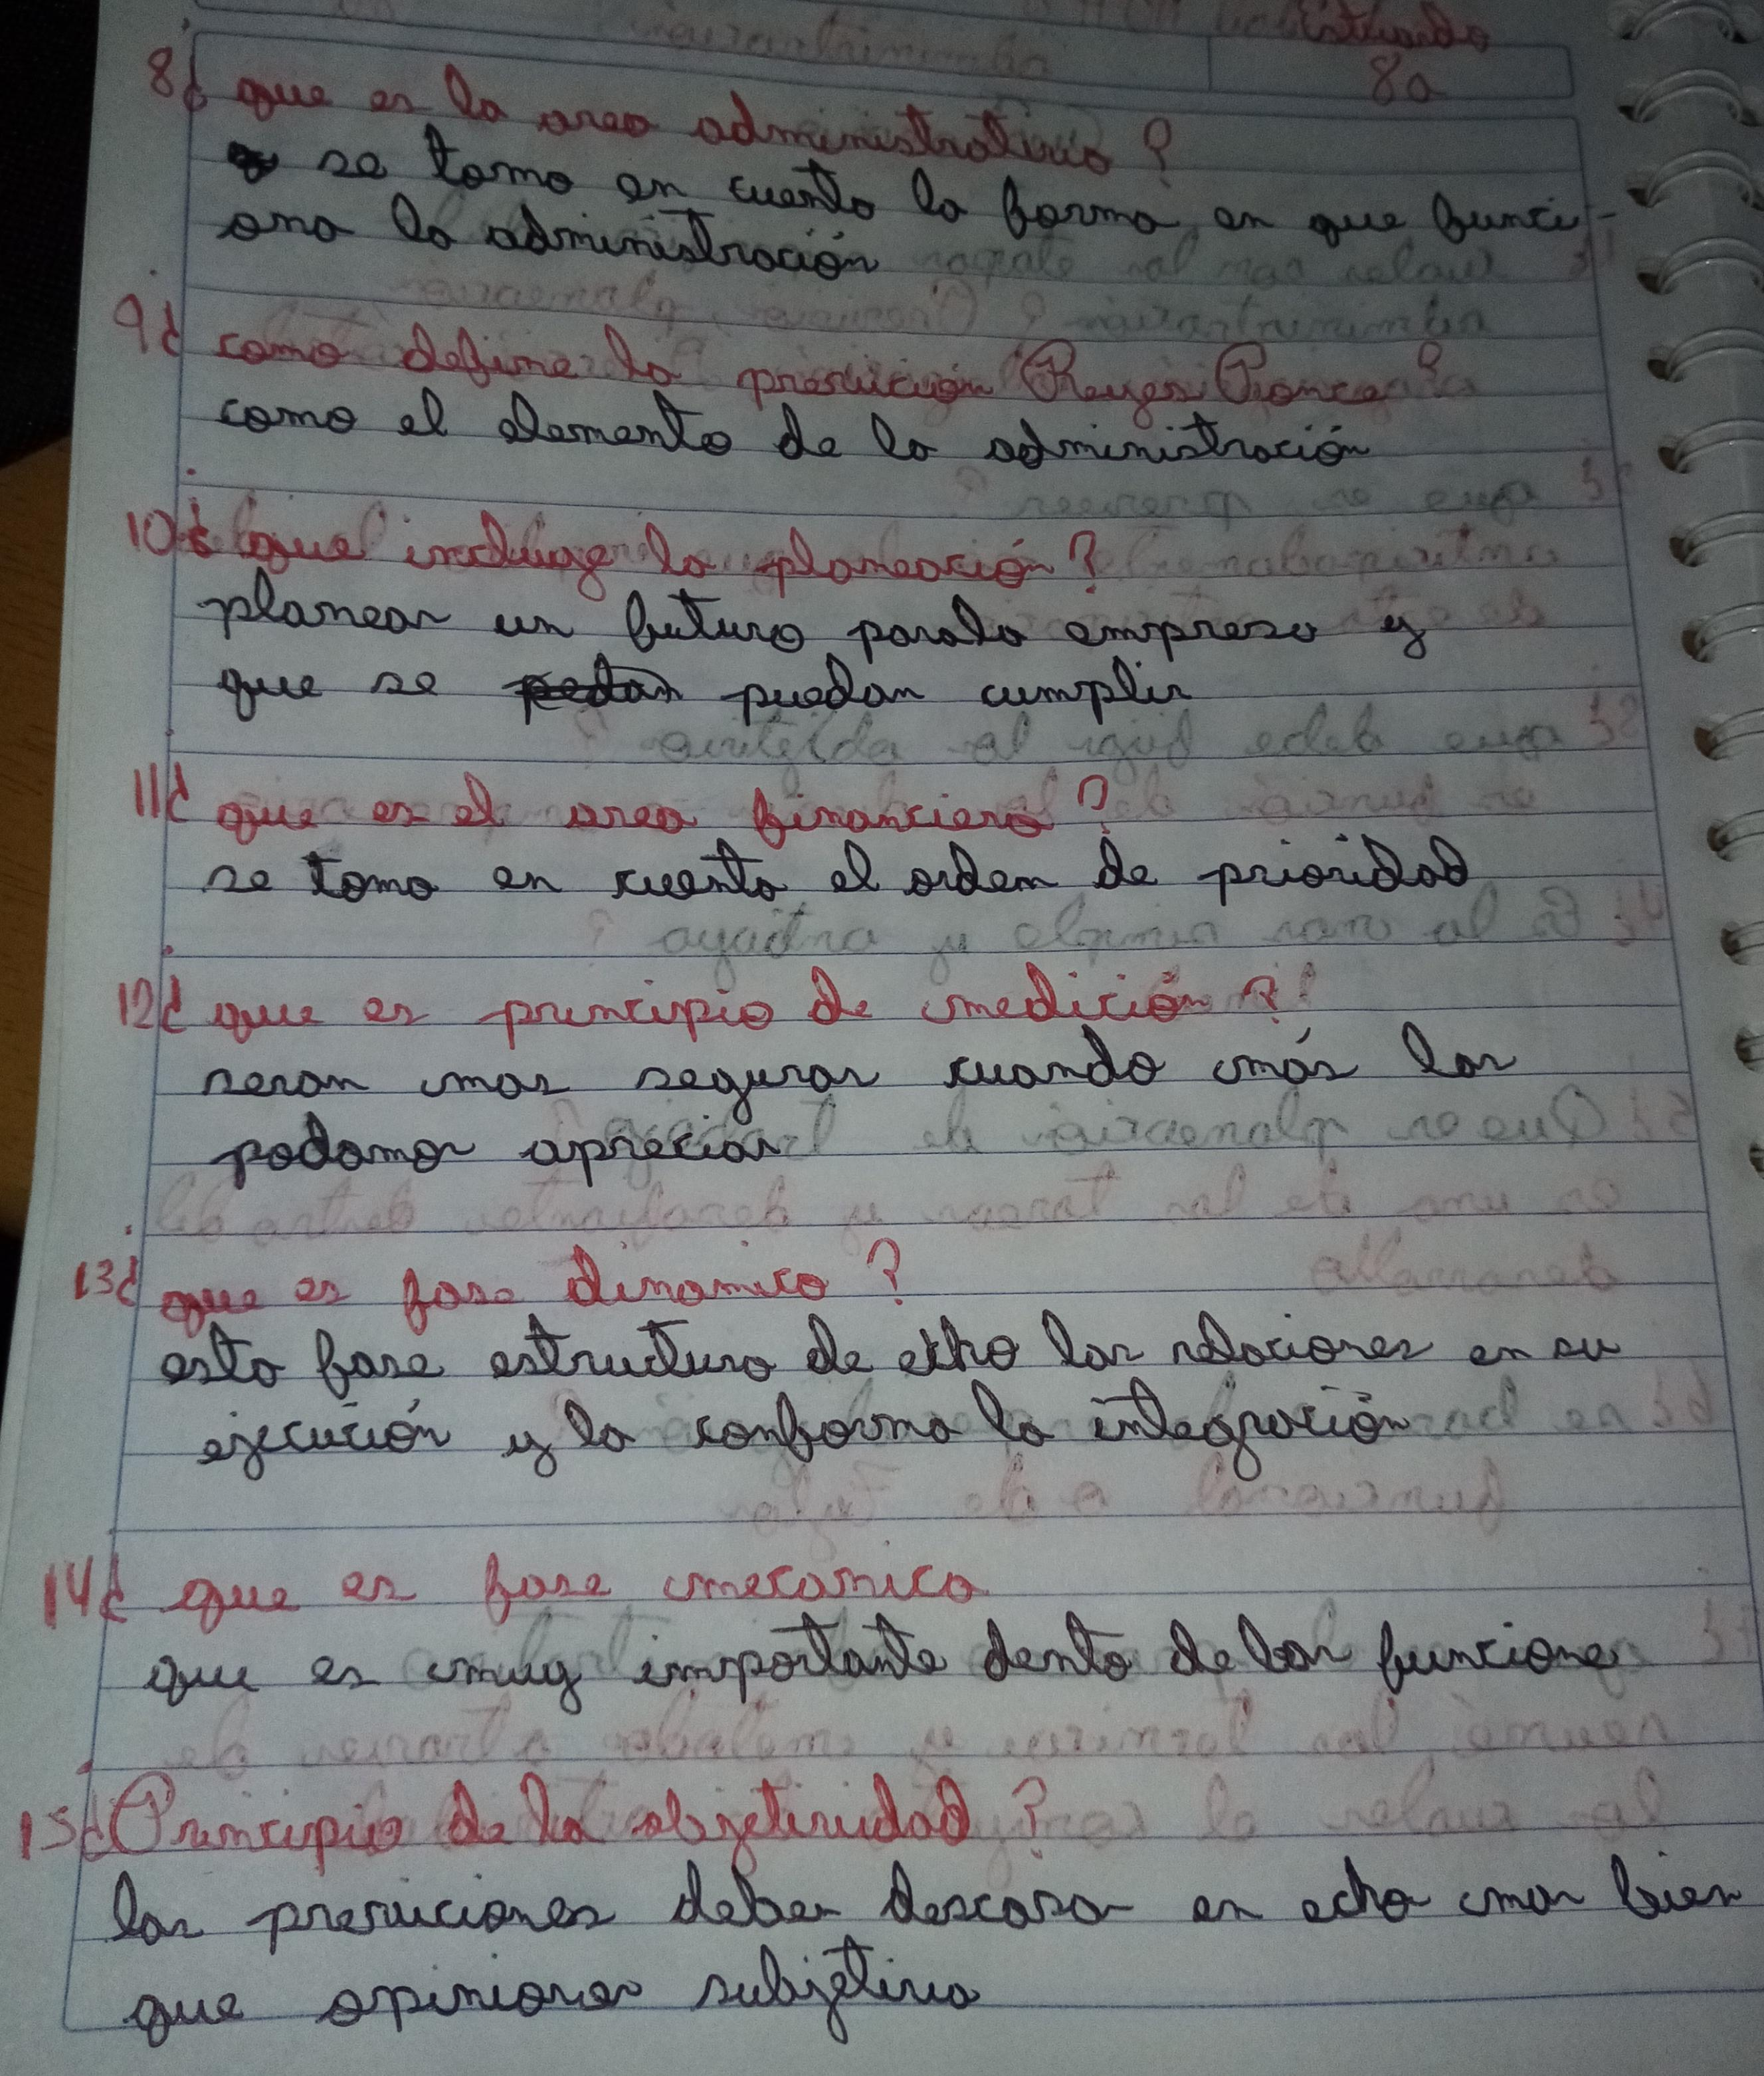 8¿ que es la area administrativa ?
se toma en cuenta la forma en que funci-
ona la administración
9¿ como define la previción Reyes Ponce?
como el elemento de la administración
10¿ que incluye la planeación ?
planear un futuro para la empresa y
que se puedan cumplir
11¿ que es el area financiera ?
se toma en cuenta el orden de prioridad
12¿ que es principio de medición ?
seran mas seguras cuando más las
podamos apreciar
13¿ que es fase dinamica ?
esta fase estructura de echo las relaciones en su
ejecución y la conforma la integración
14¿ que es fase mecanica
que es muy importante dento de las funcione
15¿ Principio de la objetividad ?
las previciones deben descasa en echo mas bien
que opiniones subjetiva